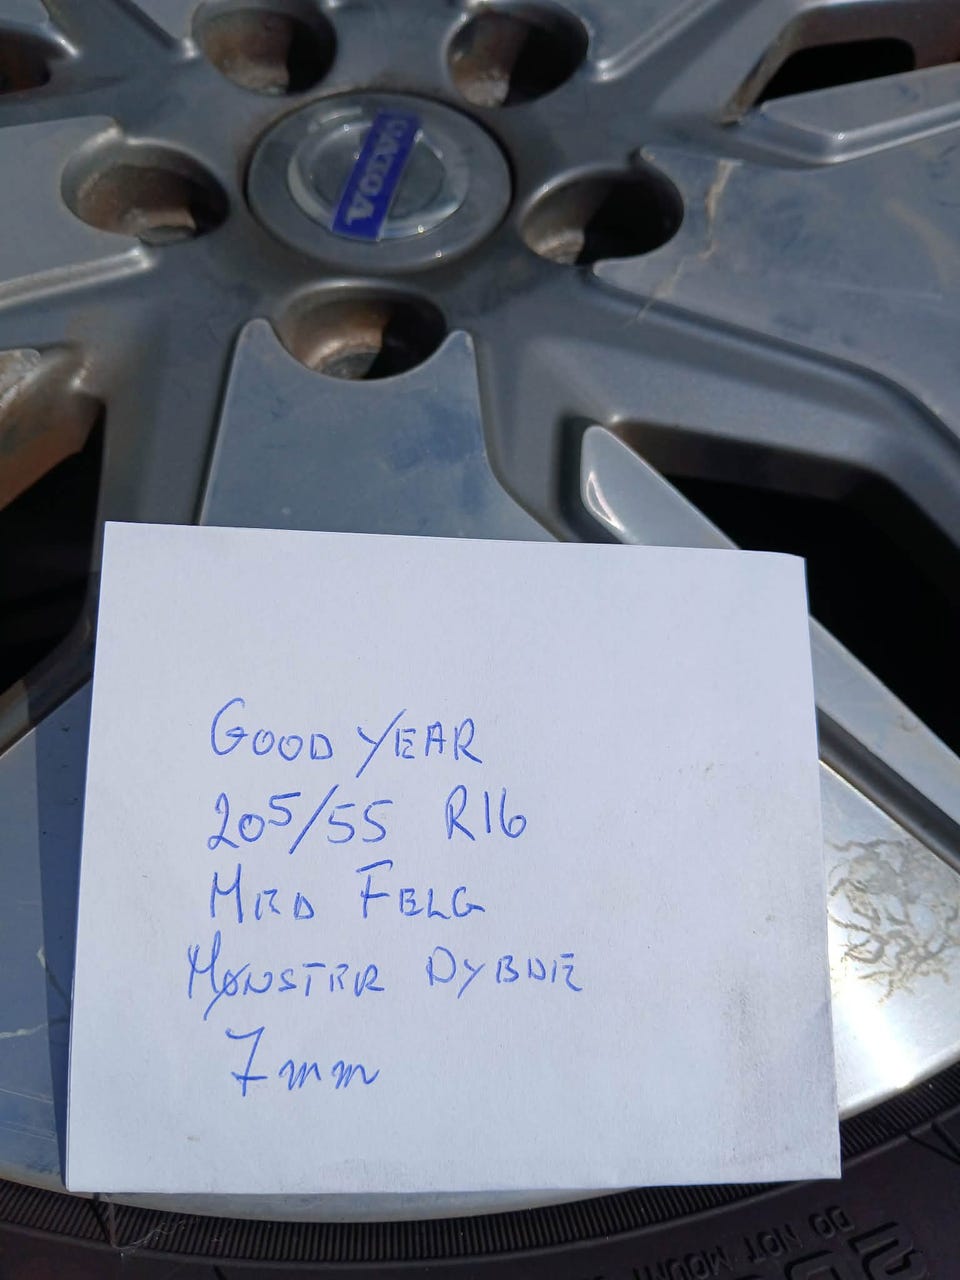 VOLVO
GOODYEAR
205/55 R16
MED FELG
MØNSTER DYBDE
7mm
DO NOT MOUNT